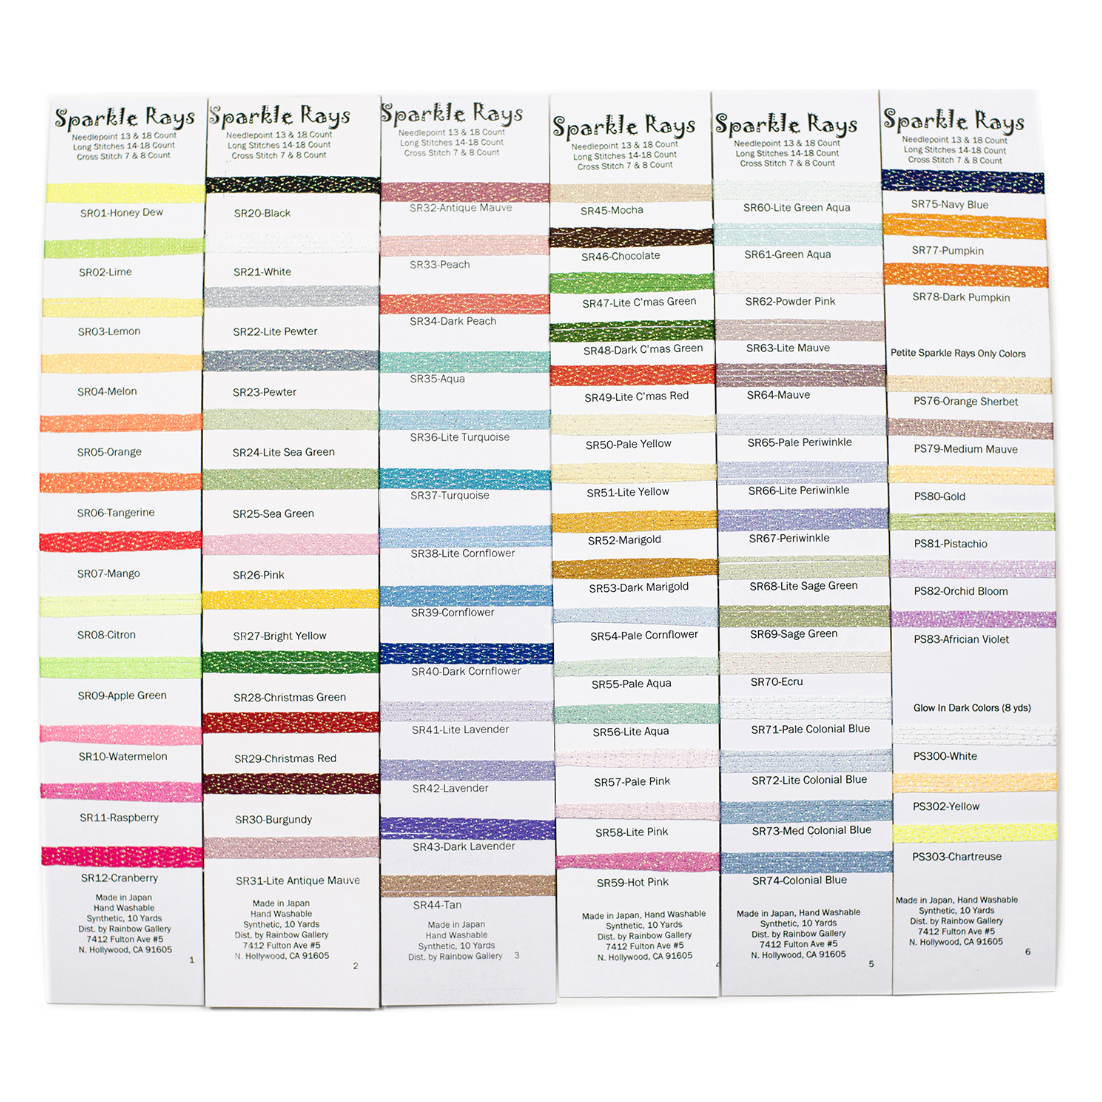 Sparkle Rays
Needlepoint 13 & 18 Count
Long Stitches 14-18 Count
Cross Stitch 7 & 8 Count
SR01-Honey Dew
SR02-Lime
SR03-Lemon
SR04-Melon
SR05-Orange
SR06-Tangerine
SR07-Mango
SR08-Citron
SR09-Apple Green
SR10-Watermelon
SR11-Raspberry
SR12-Cranberry
Made in Japan
Hand Washable
Synthetic, 10 Yards
Dist. by Rainbow Gallery
7412 Fulton Ave #5
N. Hollywood, CA 91605
1
Sparkle Rays
Needlepoint 13 & 18 Count
Long Stitches 14-18 Count
Cross Stitch 7 & 8 Count
SR20-Black
SR21-White
SR22-Lite Pewter
SR23-Pewter
SR24-Lite Sea Green
SR25-Sea Green
SR26-Pink
SR27-Bright Yellow
SR28-Christmas Green
SR29-Christmas Red
SR30-Burgundy
SR31-Lite Antique Mauve
Made in Japan
Hand Washable
Synthetic, 10 Yards
Dist. by Rainbow Gallery
7412 Fulton Ave #5
N. Hollywood, CA 91605
2
Sparkle Rays
Needlepoint 13 & 18 Count
Long Stitches 14-18 Count
Cross Stitch 7 & 8 Count
SR32-Antique Mauve
SR33-Peach
SR34-Dark Peach
SR35-Aqua
SR36-Lite Turquoise
SR37-Turquoise
SR38-Lite Cornflower
SR39-Cornflower
SR40-Dark Cornflower
SR41-Lite Lavender
SR42-Lavender
SR43-Dark Lavender
SR44-Tan
Made in Japan
Hand Washable
Synthetic, 10 Yards
Dist. by Rainbow Gallery 3
Sparkle Rays
Needlepoint 13 & 18 Count
Long Stitches 14-18 Count
Cross Stitch 7 & 8 Count
SR45-Mocha
SR46-Chocolate
SR47-Lite C'mas Green
SR48-Dark C'mas Green
SR49-Lite C'mas Red
SR50-Pale Yellow
SR51-Lite Yellow
SR52-Marigold
SR53-Dark Marigold
SR54-Pale Cornflower
SR55-Pale Aqua
SR56-Lite Aqua
SR57-Pale Pink
SR58-Lite Pink
SR59-Hot Pink
Made in Japan, Hand Washable
Synthetic, 10 Yards
Dist. by Rainbow Gallery
7412 Fulton Ave #5
N. Hollywood, CA 91605
Sparkle Rays
Needlepoint 13 & 18 Count
Long Stitches 14-18 Count
Cross Stitch 7 & 8 Count
SR60-Lite Green Aqua
SR61-Green Aqua
SR62-Powder Pink
SR63-Lite Mauve
SR64-Mauve
SR65-Pale Periwinkle
SR66-Lite Periwinkle
SR67-Periwinkle
SR68-Lite Sage Green
SR69-Sage Green
SR70-Ecru
SR71-Pale Colonial Blue
SR72-Lite Colonial Blue
SR73-Med Colonial Blue
SR74-Colonial Blue
Made in Japan, Hand Washable
Synthetic, 10 Yards
Dist. by Rainbow Gallery
7412 Fulton Ave #5
N. Hollywood, CA 91605
5
Sparkle Rays
Needlepoint 13 & 18 Count
Long Stitches 14-18 Count
Cross Stitch 7 & 8 Count
SR75-Navy Blue
SR77-Pumpkin
SR78-Dark Pumpkin
Petite Sparkle Rays Only Colors
PS76-Orange Sherbet
PS79-Medium Mauve
PS80-Gold
PS81-Pistachio
PS82-Orchid Bloom
PS83-Africian Violet
Glow In Dark Colors (8 yds)
PS300-White
PS302-Yellow
PS303-Chartreuse
Made in Japan, Hand Washable
Synthetic, 10 Yards
Dist. by Rainbow Gallery
7412 Fulton Ave #5
N. Hollywood, CA 91605
6